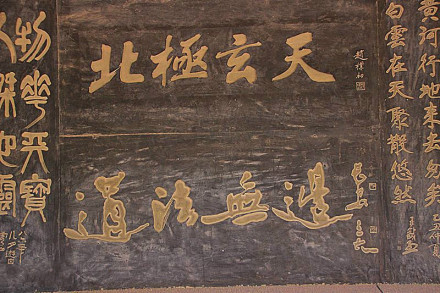 黃河行地來去匆
白雲在天聚散悠然
北極玄天
趙樸初
道法無邊
物華天寶
人傑地靈